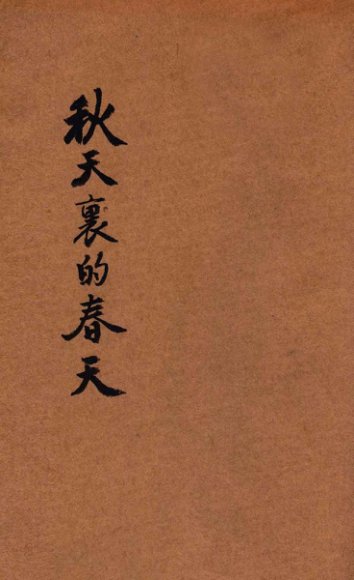 秋天裏的春天